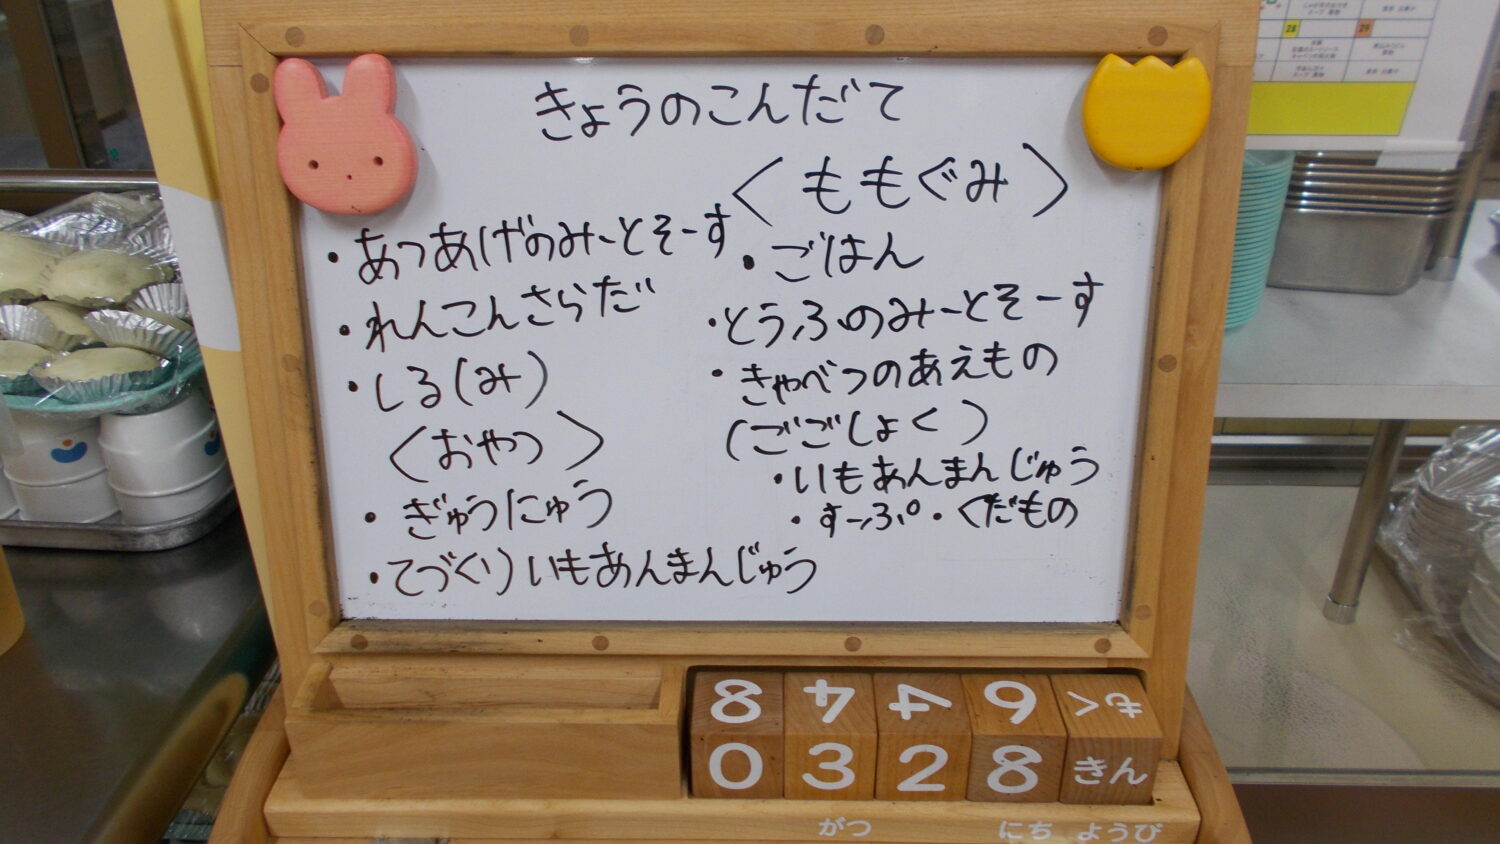 きょうのこんだて
・あつあげのみーとそーす
・れんこんさらだ
・しる(み)
〈おやつ〉
・ぎゅうにゅう
・てづくりいもあんまんじゅう
〈ももぐみ〉
・ごはん
・とうふのみーとそーす
・きゃべつのあえもの
(ごごしょく)
・いもあんまんじゅう
・すーぷ・くだもの
8 4 4 6 もく
0 3 2 8 きん
がつ にち ようび
28 29